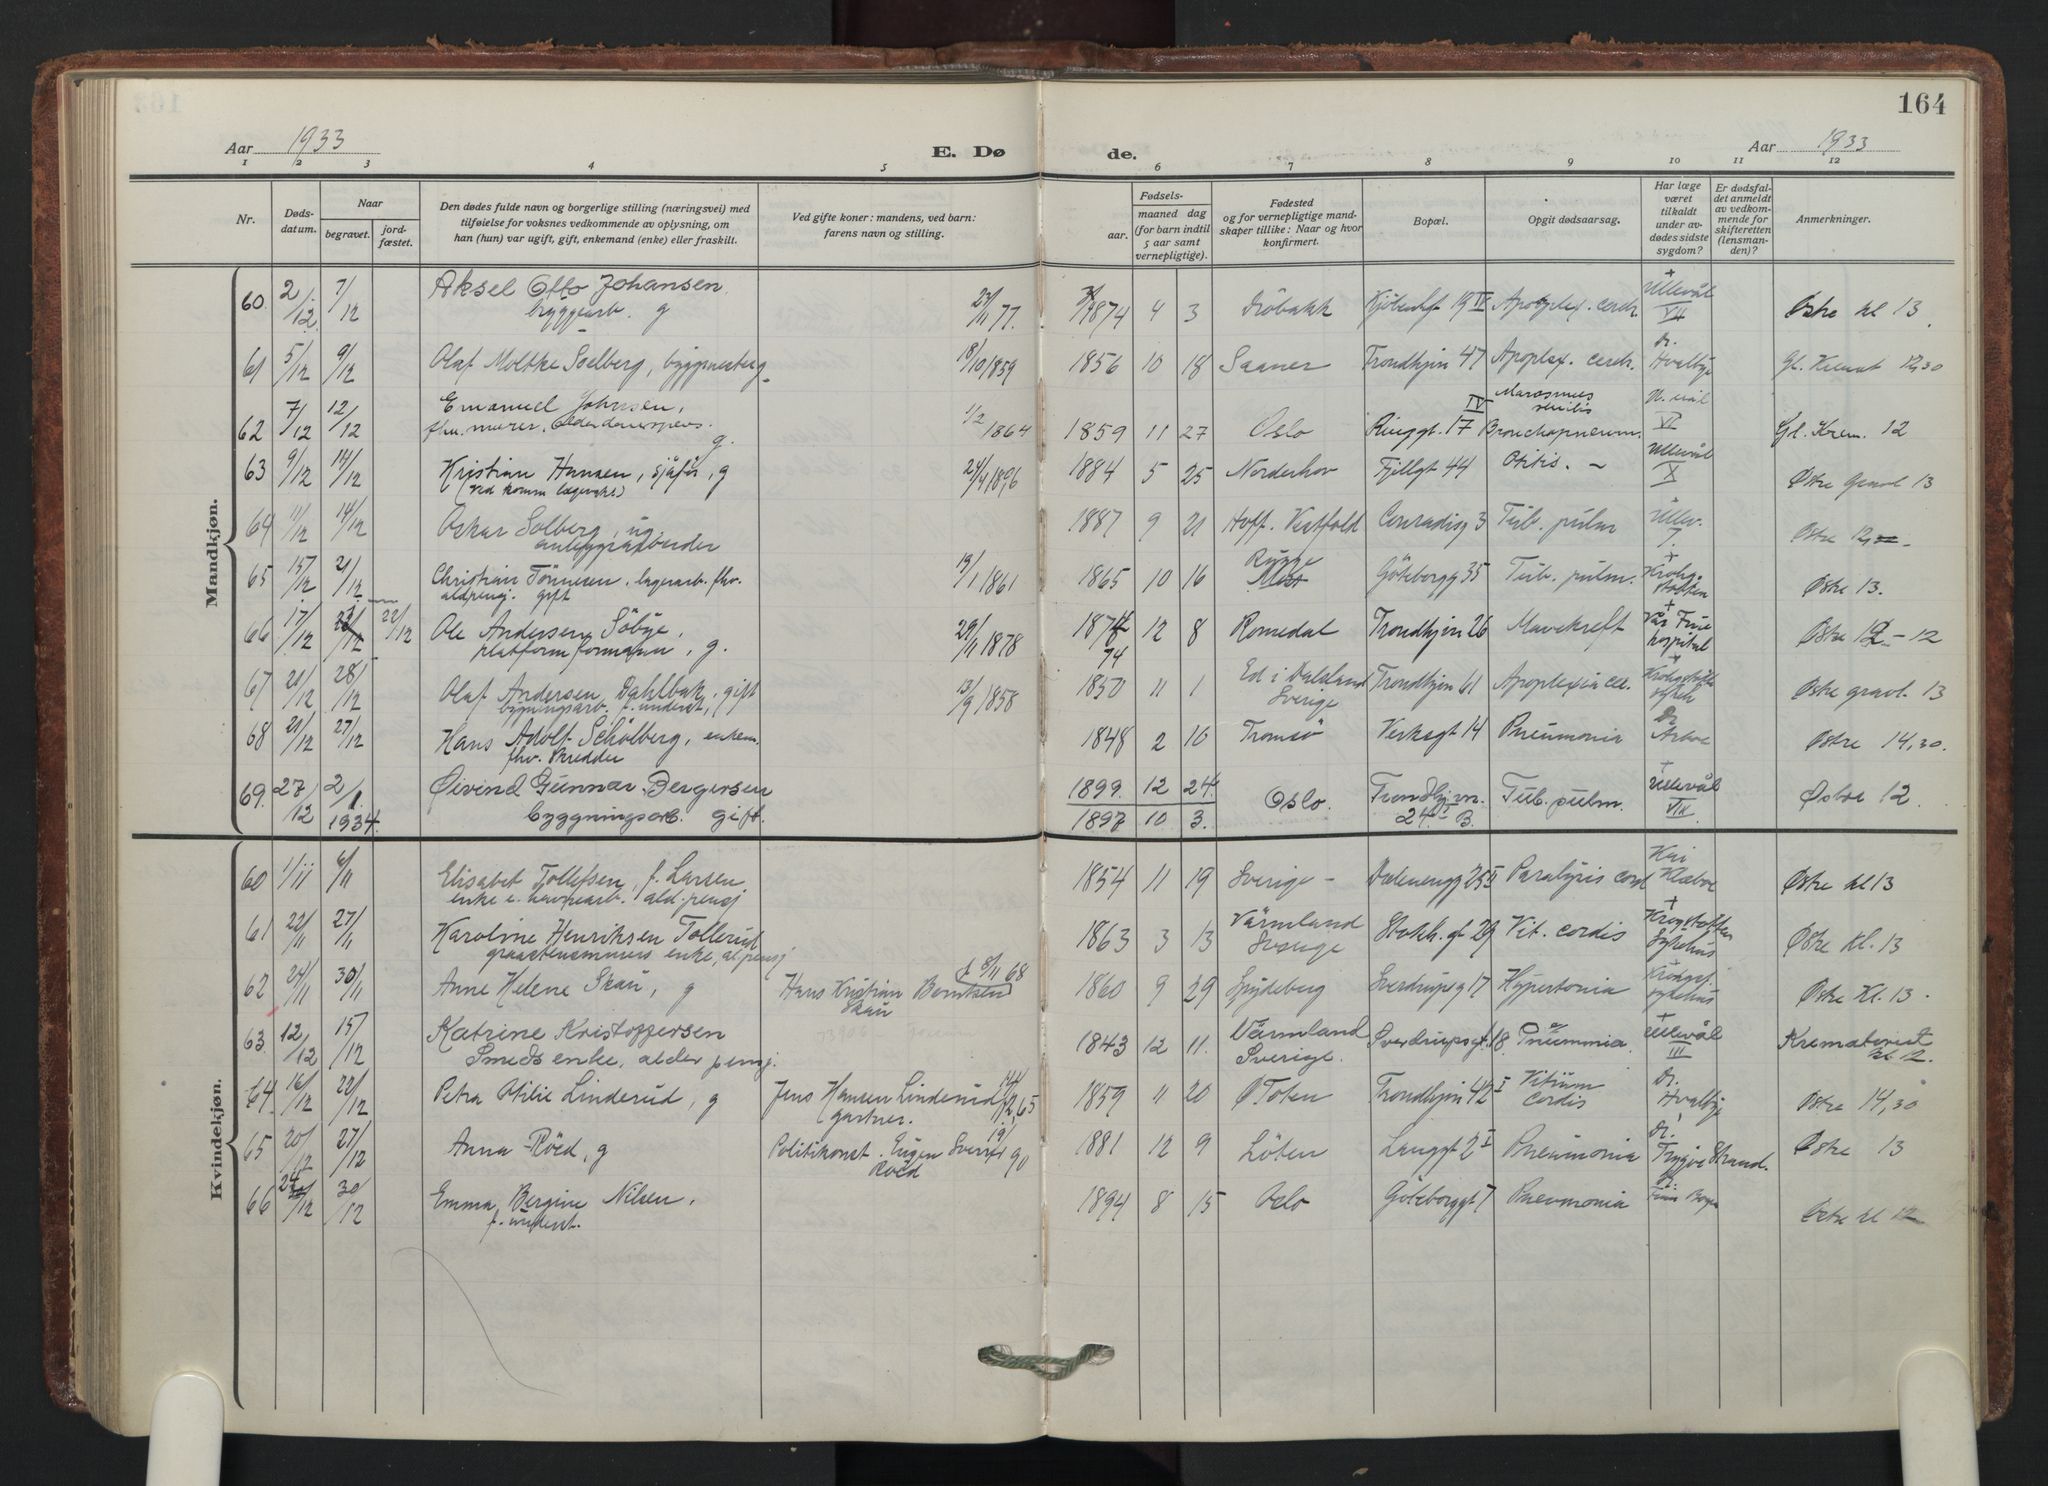 164
Aar 1933 E. Døde. Aar 1933
1 2 3 4 5 6 7 8 9 10 11 12
Nr.
Døds-
datum.
Naar
begravet.
jord-
fæstet.
Den dødes fulde navn og borgerlige stilling (næringsvei) med
tilføielse for voksnes vedkommende av oplysning, om
han (hun) var ugift, gift, enkemand (enke) eller fraskilt.
Ved gifte koner: mandens, ved barn:
farens navn og stilling.
Fødsels-
aar.
maaned dag
(for barn indtil
5 aar samt
vernepligtige).
Fødested
og for vernepligtige mand-
skaper tillike: Naar og hvor
konfirmert.
Bopæl.
Opgit dødsaarsag.
Har læge
været
tilkaldt
under av-
dødes sidste
sygdom?
Er dødsfal-
det anmeldt
av vedkom-
mende for
skifteretten
(lensman-
den)?
Anmerkninger.
Mandkjøn.
60 2/12 7/12 Aksel Otto Johansen 23/11 77. 1874 4 3 Drøbakk 19 IV Apoplex. cerebr. + Ullevål VII Østre kl 13.
byggearb. g
61 5/12 9/12 Olaf Moltke Solberg, 18/10 1859 1856 10 18 Saaner Trondhjm 47 Apoplex. cerebr. Dr. Hvalbye Gl. Kremat 12,30
62 7/12 12/12 Emanuel Johnsen, 1/2 1864 1859 11 27 Oslo Ringgt. 17 IV Marasmus senilis Bronchopneum. VI Gl. Krem. 12
fhv. murer. g.
63 9/12 14/12 Kristian Hansen, sjåfør, g 24/4 1896 1884 5 25 Norderhov Fjellgt 44 Otitis. - Ullevål X Østre gravl 13
(ved komm lægevakt)
64 11/12 14/12 Oskar Solberg, ug. 1887 9 21 Hoff. Vestfold Conradisg 3 Tub. pulm Ullev. 7. Østre
anleggsarbeider
65 15/12 21/12 Christian Tønnesen. lagerarb. fhv. 19/1 1861 1865 10 16 Rygge Göteborgg 35 Tub. pulm. + Krohg støtten Østre 13.
aldpensj. gift
66 17/12 22/12 Ole Andersen Söbye, 29/11 1878 1874 12 8 Romedal Trondhjm 26 Mavekreft + Vår Frue hospital Østre 12 - 12
platformformann, g. 74
67 20/12 28/12 Olaf Andersen Dahlbak, gift 13/9 1858 1850 11 1 Ed i Dalsland Sverige Trondhjm 61 Apoplexia cer. + Krohgstøtte sykeh Østre gravl. 13
bygningsarb. f. underst.
68 21/12 27/12 Hans Adolf Schölberg, enkem. 1848 2 10 Tromsø Verksgt 14 Pneumonia Dr Østre 14,30.
fhv. Skredder
69. 27/12 2/1 1934. Øivind Gunnar Bergersen 1899. 12 24. Oslo. Trondhjm. 24 I B. Tub. pulm. + Ullevål VIII Østre 12.
byggningsarb. gift. 1897 10 3.
Kvindekjøn.
60 1/11 6/11 Elisabet Tollefsen, f. Larsen 1854 11 19 Sverige - Dælenengg 25 II Paralysis cord Kai Klæboe Østre kl 13
enke e. havnearb. ald. pensj
61 22/11 27/11 Karoline Henriksen Tollerud 1863 3 13 Värmland Sverige Stokh. gt 29 Vit. cordis + Krogstøtten Sykehus Østre Kl. 13
enke, al pensj
62 24/11 30/11 Anne Helene Skau, g Hans Kristian Berntsen Skau f 8/11 68 1860 9 29 Spydeberg Sverdrupsg 17 Hypertonia Krohgst. sykehus Østre Kl. 13.
63. 12/12 15/12 Katrine Kristoffersen 1843 12 11. Värmland Sverige. Sverdrupsgt. 18. Pneumonia. + Ullevål III Krematoriet kl. 12.
Smeds enke, alder pensj.
64 16/12 22/12 Petra Otilie Linderud, g Jens Hansen Linderud 65 1859 11 20 Ø Toten Trondhjm 42 I Vitium cordis Dr. Hvalbye Østre 14,30
gartner.
65 20/12 27/12 Anna Röed, g Politikonst. Eugen Röed 19/1 90 1881 12 9 Löten Langgt 2 I Pneumonia Dr. Trygve Strand. Østre 13
66 24/12 30/12 Emma Bergine Nilsen, 1894 8 15 Oslo Göteborggt 7 Pneumonia Østre kl 12
f. underst.